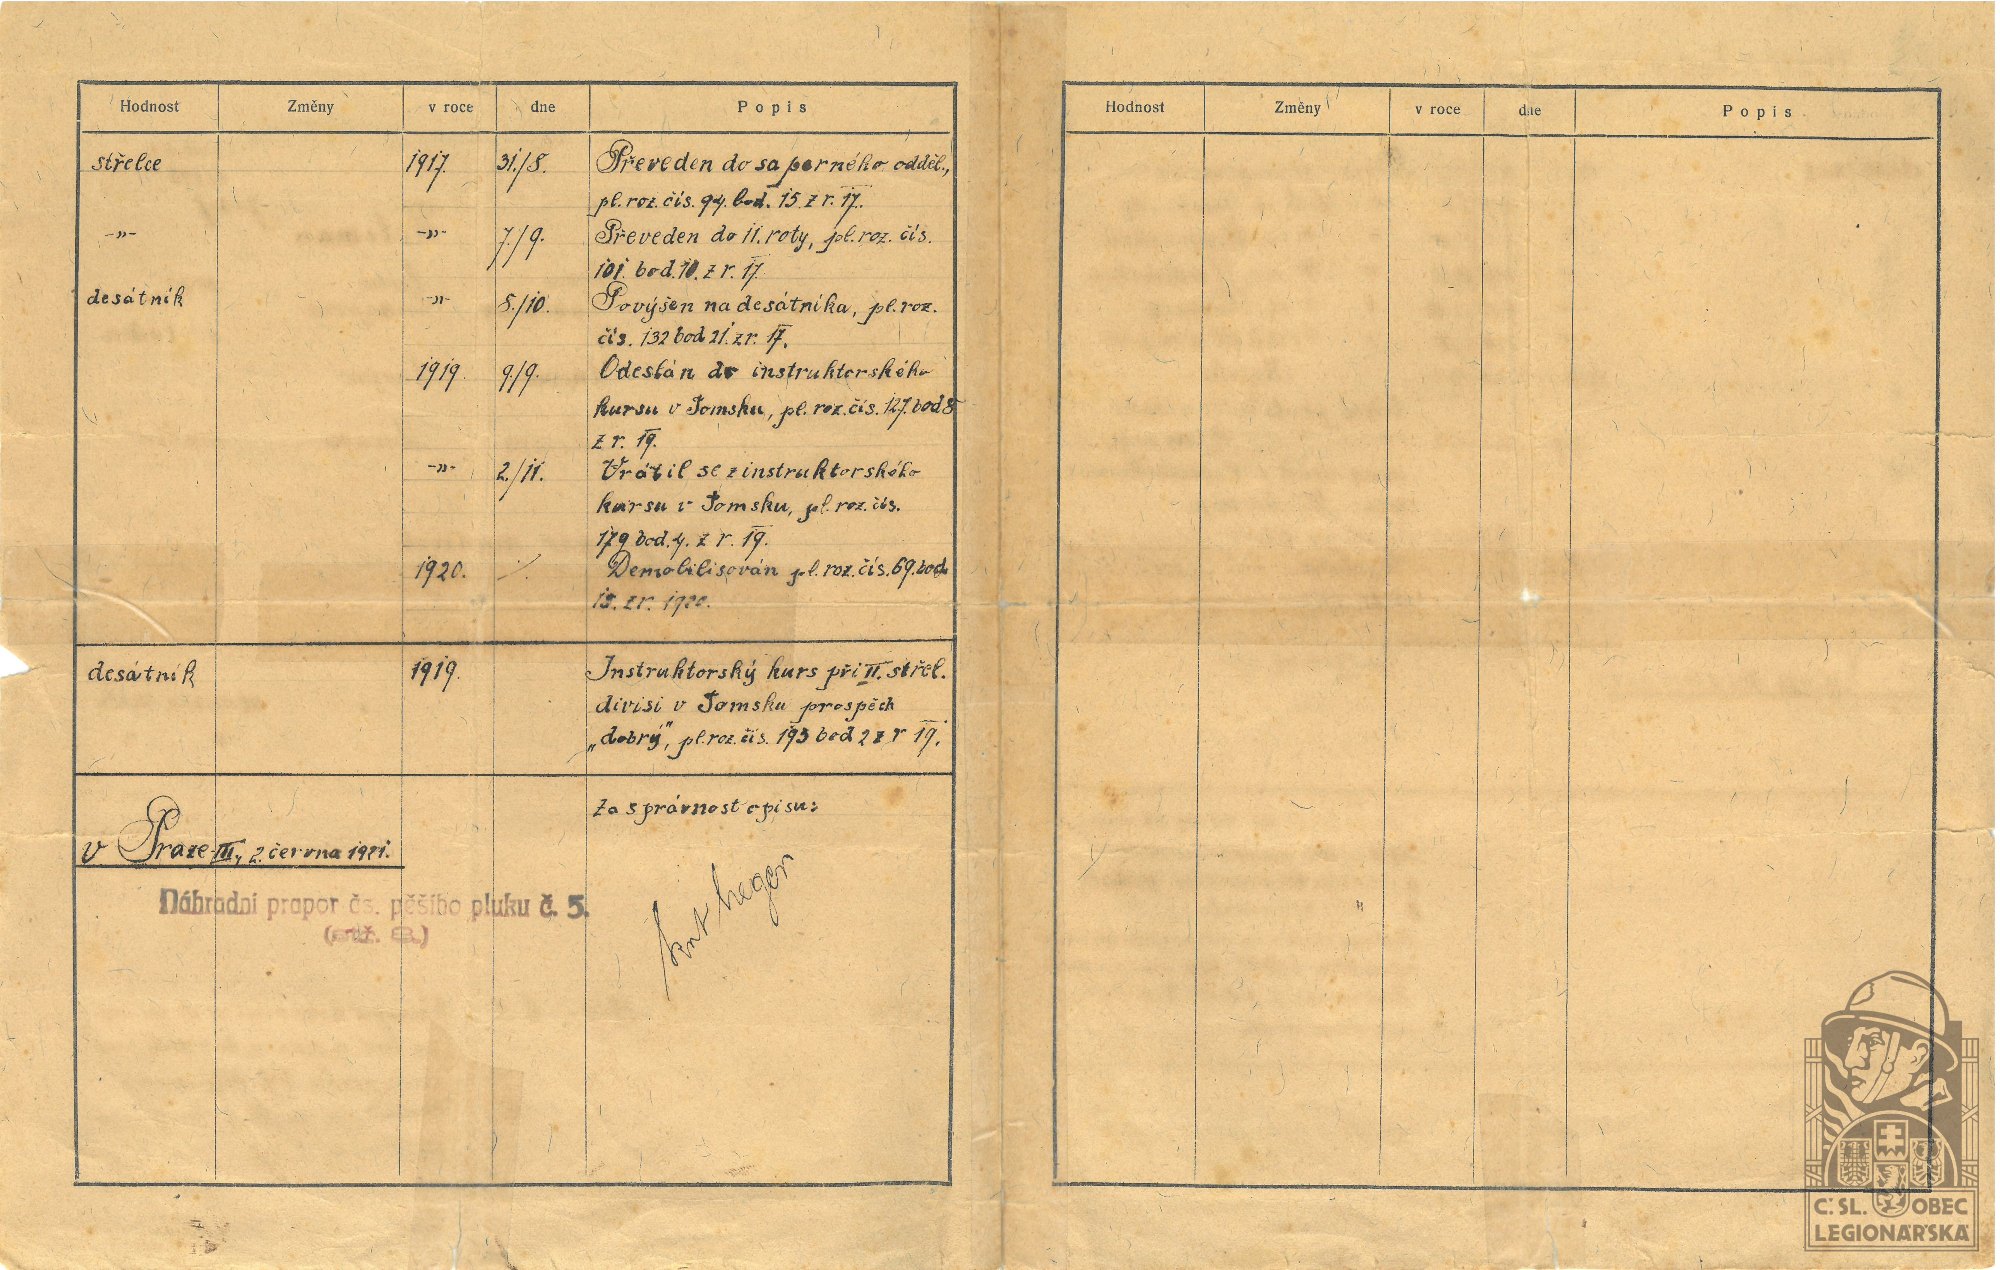 Hodnost Změny v roce dne Popis
střelec 1917. 31./8. Převeden do saperného odděl.,
pl. roz. čís. 94. bod. 15. z r. 17.
-„- -„- 7./9. Převeden do 11. roty, pl. roz. čís.
101. bod. 10. z r. 17.
desátník -„- 8./10. Povýšen na desátníka, pl. roz.
čís. 132 bod 21. z r. 17.
1919. 9./9. Odeslán do instruktorského
kursu v Tomsku, pl. roz. čís. 127. bod 8
z r. 19.
-„- 2./11. Vrátil se z instruktorského
kursu v Tomsku, pl. roz. čís.
179 bod. 4. z r. 19.
1920. Demobilisován pl. roz. čís. 69. bod.
z r. 1920.
desátník 1919. Instruktorský kurs při II. střel.
divisi v Tomsku prospěch
„dobrý", pl. roz. čís. 193 bod 2 z r 19.
Za správnost opisu:
v Praze III., 2. června 1921.
Náhradní prapor čs. pěšího pluku č. 5.
Hodnost Změny v roce dne Popis
Č. SL. OBEC
LEGIONÁŘSKÁ